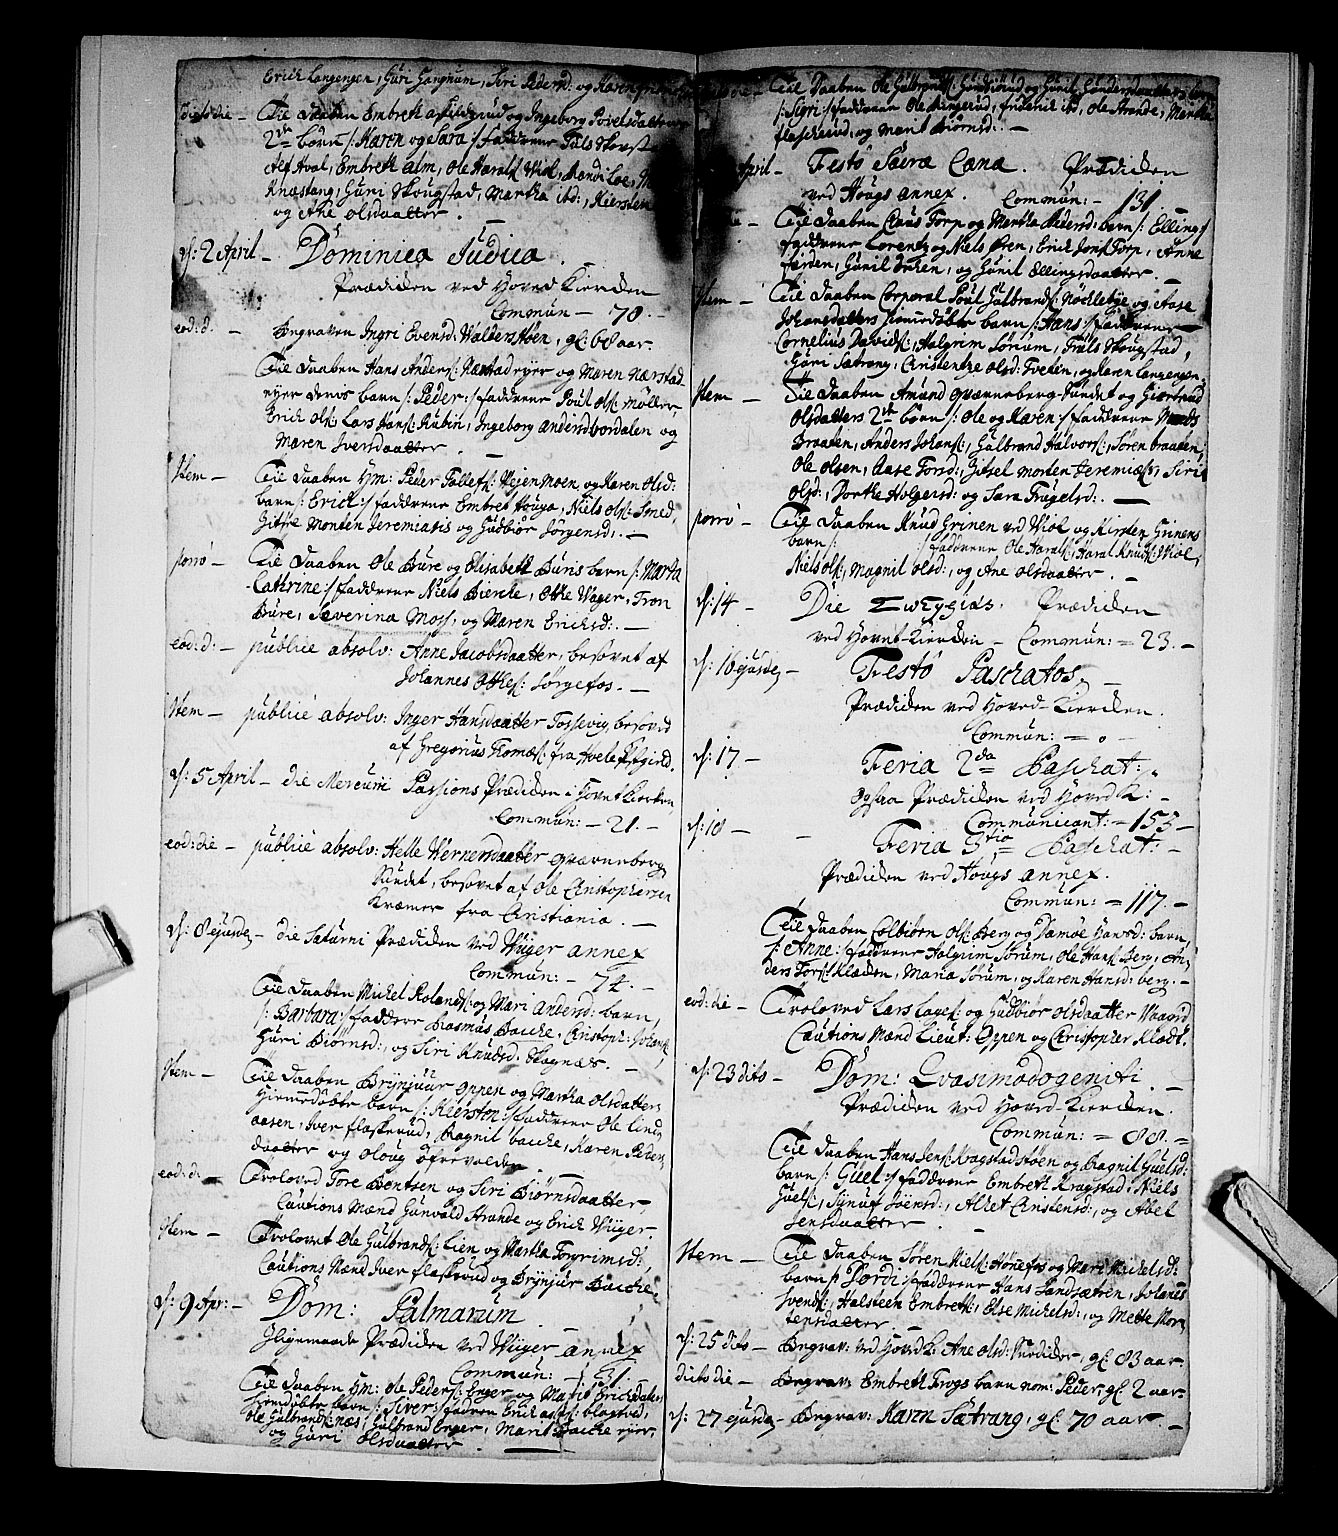 Erich Langengen, Guri Gangnum, Siri Pedersd: og Karen
dito die – Til Daaben Embreth og Ingeborg Povelsdaatters
2de børn /: Karen og Sara :/ fadderne Fals Skougst
Alf Hval, Embreth Alm, Ole Haralds: Wiol, Randi Loe,
Knæstang, Guri Skougstad, Martha ibd:, Kiersten
og Ane Olsdaatter. –
d: 2 April – Dominica Judica.
Prædiken ved Hoved Kiercken
Commun – 70. –
eod: d. – Begraven Ingri Evensd: Walderstøen, gl: 68 aar.
Til Daaben Hans Anders: Nærstad eyer og Maren Nærstad
eyer deris barn /: Peder :/ fadderne Poul Ols: Møller
Erich Ols: Lars Hans: Rubin, Ingeborg Andersd bordalen og
Maren Iversdaatter. –
Item – Til Daaben Ym: Peder Tollefs: Vejenmoen og Karen Olsd:
barn /: Erich :/ fadderne Embret Houga, Niels Ols: Smed,
Gitsle Monten Jeremiasis og Gudbiør Jørgensd:. –
porro – Til Daaben Ole Bure og Elisabeth Buris barn /: Marta
Cathrine :/ fadderne Niels Bierche, Otthe Wager, Tron
Bure, Severina Moss, og Maren Ericksd:. –
eod: d: – publice absolv: Anne Jacobsdaatter, besovet af
Johannes Otthes: Sørgefos. –
Item – publice absolv: Inger Hansdaatter Tossevig, besovid
af Gregorius Thomæs: fra Hvele Præstegield.
d: 5 April – die Mercurii Passions Prædiken i Hovet Kircken,
Commun: – 21. –
eod: die – publice absolv: Helle Wernersdaatter Qværneberg
Sundet, besovet af Ole Christophersen
Kræmer fra Christiania. –
d: 8 ejusdem – die Saturni Prædiken ved Wiiger annex
Commun: – 74. –
Til Daaben Michel Rolands: og Mari Andersd: barn,
/: Barbara :/ fadderne Rasmus Bacche, Christoph: Johans:
Guri Biørnsd:, og Siri Knudsd: Skagnæs. –
Item – Til Daaben Brynjuur Oppen og Martha Olsdatters
hiemmedøbte barn /: Kiersten :/ fadderne Ole Lind
aasen, Iver flaskerud, Ragnil bacche, Karen Peders
daatter og Oloug Øfrevolden. –
eod: d: – Trolovid Tore Bentsen og Siri Biørnsdaatter,
Cautions Mænd Gunvald Strande og Erich Wiiger. –
Item – Trolovet Ole Gulbrands: Lien og Martha Torgrimsd:,
Cautions Mænd Iver flaskerud og Brynjur Bacche.
d: 9 Apr: – Dom: Palmarum
Prædiken ved Wiiger annex
Commun: – 51. –
Til Daaben Ym: Ole Peders: Enger og Marit Erichsdatters
hiemdøbte barn /: Siver :/ fadderne Erich blagstved,
Ole Gulbrands: næs, Gulbrand Enger, Marit Bacche eyer,
og Guri Olsdaatter –
die – Til Daaben Ole Gulbrands: Gundersrud og Gunil Gundersdaatters barn
/: Sigri :/ fadderne Ole Ringerud, friderich ibd, Ole Strande, Martha
flaskerud, og Marit Biørnsd:. –
April – Festo Sacræ Cænæ. Prædiken
ved Hougs annex. Commun: – 131. –
Til Daaben Claus Torp og Martha Pedersd: barn /: Elling :/
fadderne Lorentz og Niels Øren, Erich Jons: Torp, Anne
færden, Gunil Inhen, og Gunil Ellingsdaatter. –
Item – Til Daaben Corporal Poul Gulbrands: Nøcklebye og Aase
Johansdatters hiemmedøbte barn /: Hans :/ fadderne
Cornelius Davids:, Halgrim Sørum, Truls Skougstad,
Guri Sætrang, Christentze Olsd: Tveten, og Karen Langengen.
Item – Til Daaben Amund Qværneberg Sundet og Giertrud
Olsdatters 2de børn /: Ole og Karen :/ fadderne Mands
Braaten, Anders Johans:, Gulbrand Halvors:, Søren braaten,
Ole Olsen, Aase Torsd:, Gitsel Morten Jeremiæs:, Siri
Olsd:, Dorthe Holgersd: og Sara Trugelsd:. –
porro – Til Daaben Knud Grinen ved Wiol og Kirsten Grinens
barn /: :/ fadderne Ole Harals:, Haral Knuds: Wiol,
Niels Ols:, Magnil Olsd:, og Ane Olsdaatter. –
d: 14 – Die Prædiken
ved Hovet-Kiercken – Commun: – 23. –
d: 16 ejusdem – Festo Paschatos. –
Prædiken ved Hoved-Kiercken.
Commun: – 0 –
d: 17 – Feria 2da Paschat:.
Ogsaa Prædiken ved Hoved K: –
Communicant: – 153 –
d: 18 – Feria 3tia Paschat: –
Prædiken ved Hougs annex.
Commun: – 117. –
Til Daaben Colbiørn Ols: Berg og Damøe Hansd: barn,
/: Anne :/ fadderne Halgrim Sørum, Ole Hans: Berg, An-
ders Tors: Klæcken, Maria Sørum, og Karen Hansd: berg: –
eod: die – Trolovid Lars Lages: og Gudbiør Olsdaatter Vaagard
Cautions Mænd Lieut: Oppen og Christopher Klæckt.
d: 23 dito – Dom: Qvasimodogeniti. –
Prædiken ved Hoved-Kiercken.
Commun: – 88. –
Til Daaben Hans Jens: Kragstadstøen og Ragnil Guelsd:
barn /: Guel :/ fadderne Embreth Kragstad, Niels
Guels:, Synuf Joensd:, Alhet Christensd:, og Abel
Jensdaatter. –
Item – Til Daaben Søren Niels: Hønefos og Mari Michelsd:
barn /: Jordi :/ fadderne Hans Sandsætren, Johannes
Svends:, Halsteen Embreths:, Else Michelsd:, og Mette Mor-
tensdaatter. –
d: 25 dito – Begrav: ved Hoved K: Ane Olsd: gl: 83 aar.
dito die – Begrav: Embreth Frogs barn nom: Peder, gl: 2 aar.
d: 27 ejusdem – Begrav: Karen Sætrang, gl: 70 aar –